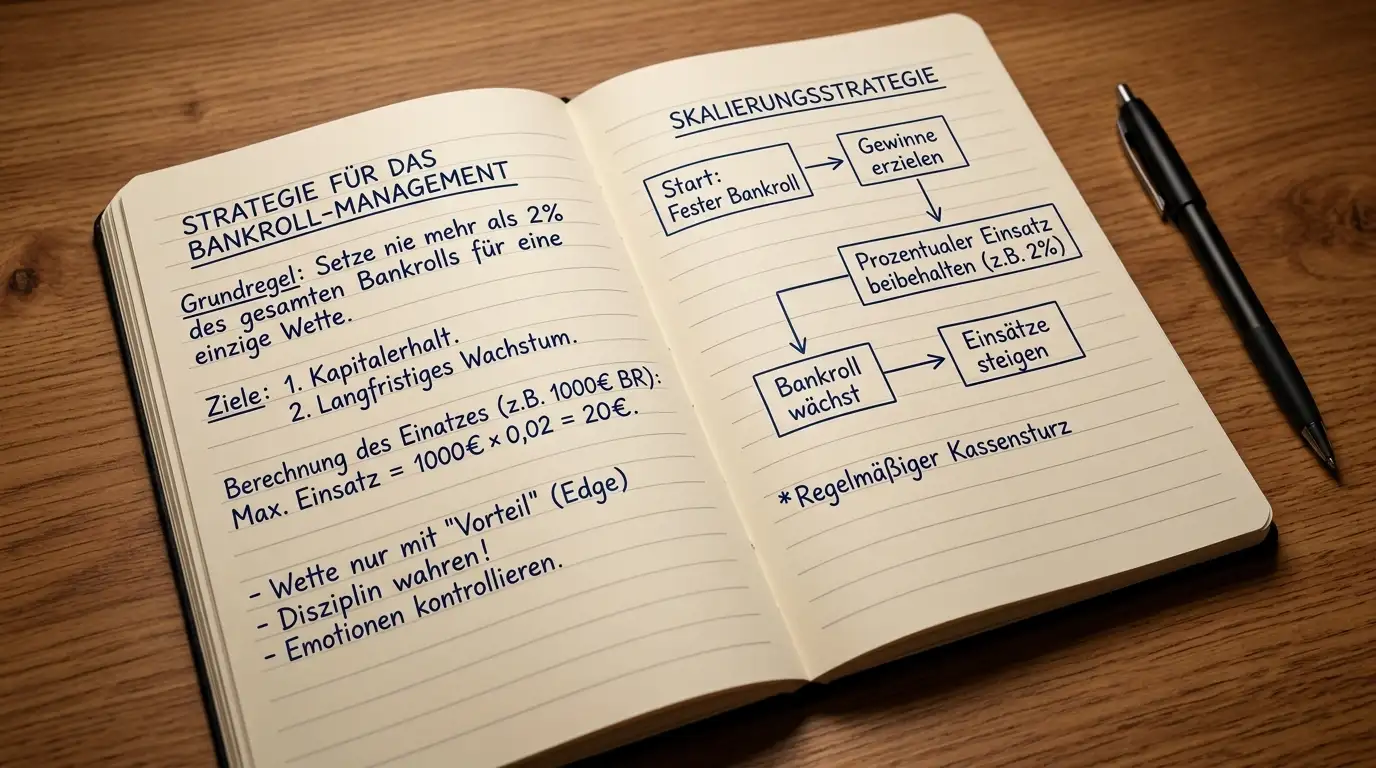 STRATEGIE FÜR DAS
BANKROLL-MANAGEMENT
Grundregel: Setze nie mehr als 2%
des gesamten Bankrolls für eine
einzige Wette.
Ziele: 1. Kapitalerhalt.
2. Langfristiges Wachstum.
Berechnung des Einatzes (z.B. 1000€ BR):
Max. Einsatz = 1000€ × 0,02 = 20€.
- Wette nur mit "Vorteil" (Edge)
- Disziplin wahren!
- Emotionen kontrollieren.
SKALIERUNGSSTRATEGIE
Start:
Fester Bankroll
Gewinne
erzielen
Prozentualer Einsatz
beibehalten (z.B. 2%)
Bankroll
wächst
Einsätze
steigen
*Regelmäßiger Kassensturz